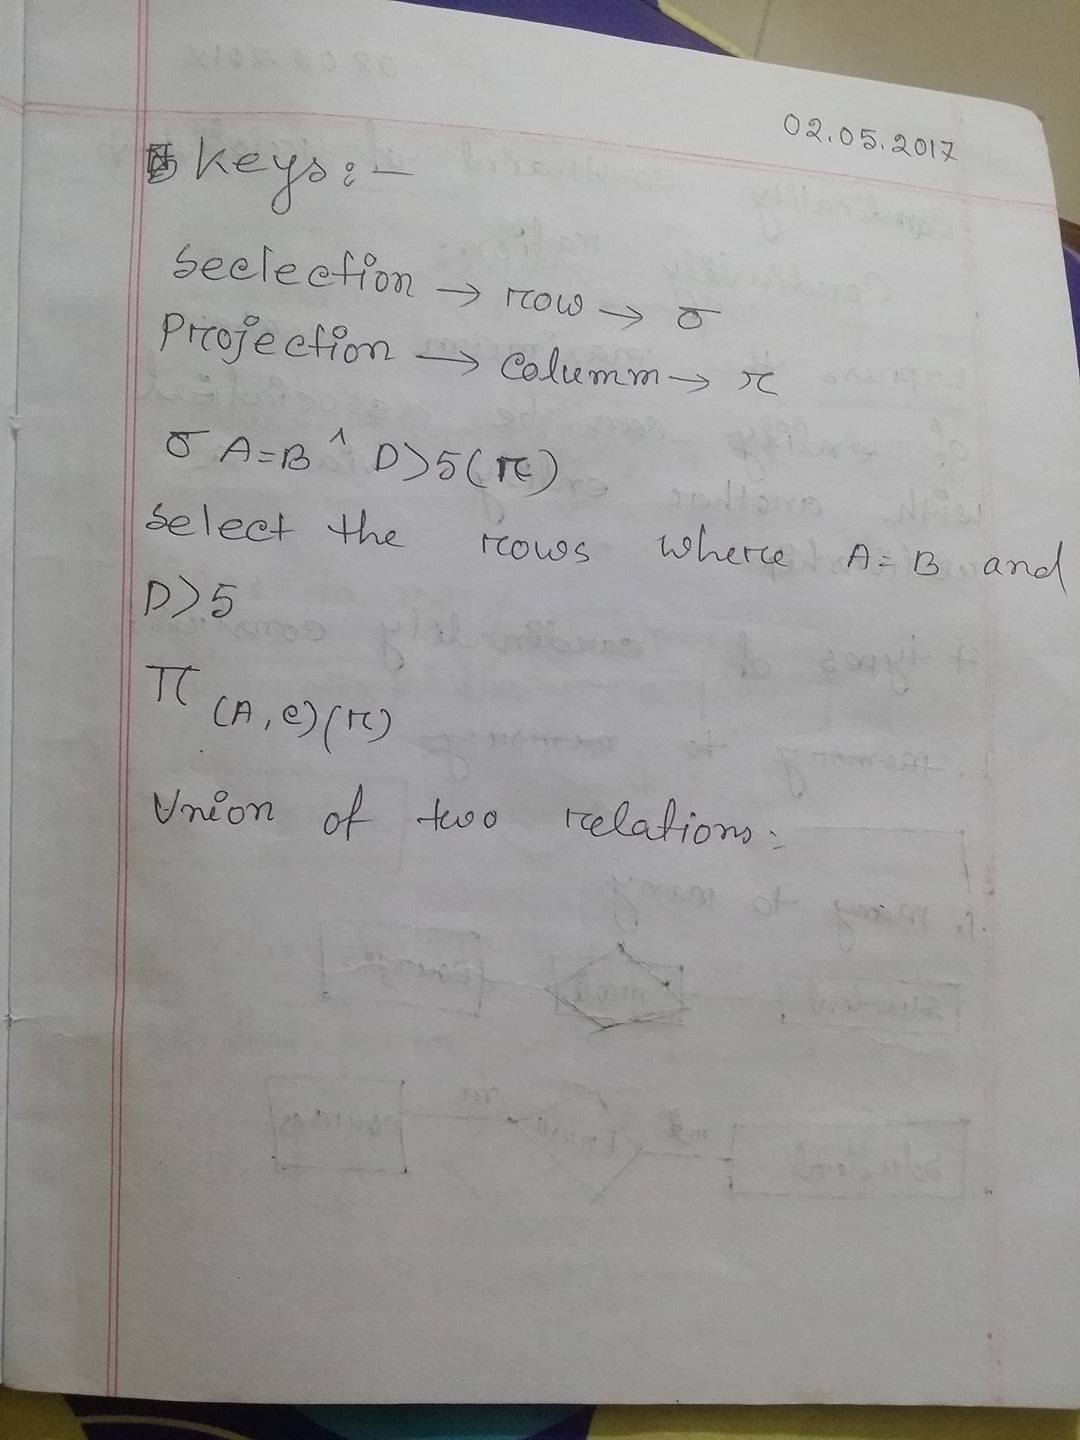 02.05.2017
Keys:-
Seclection → row → σ
Projection → Columm → π
σ A=B ^ D>5(r)
Select the rows where A=B and
D>5
π (A,C)(r)
Union of two relations: